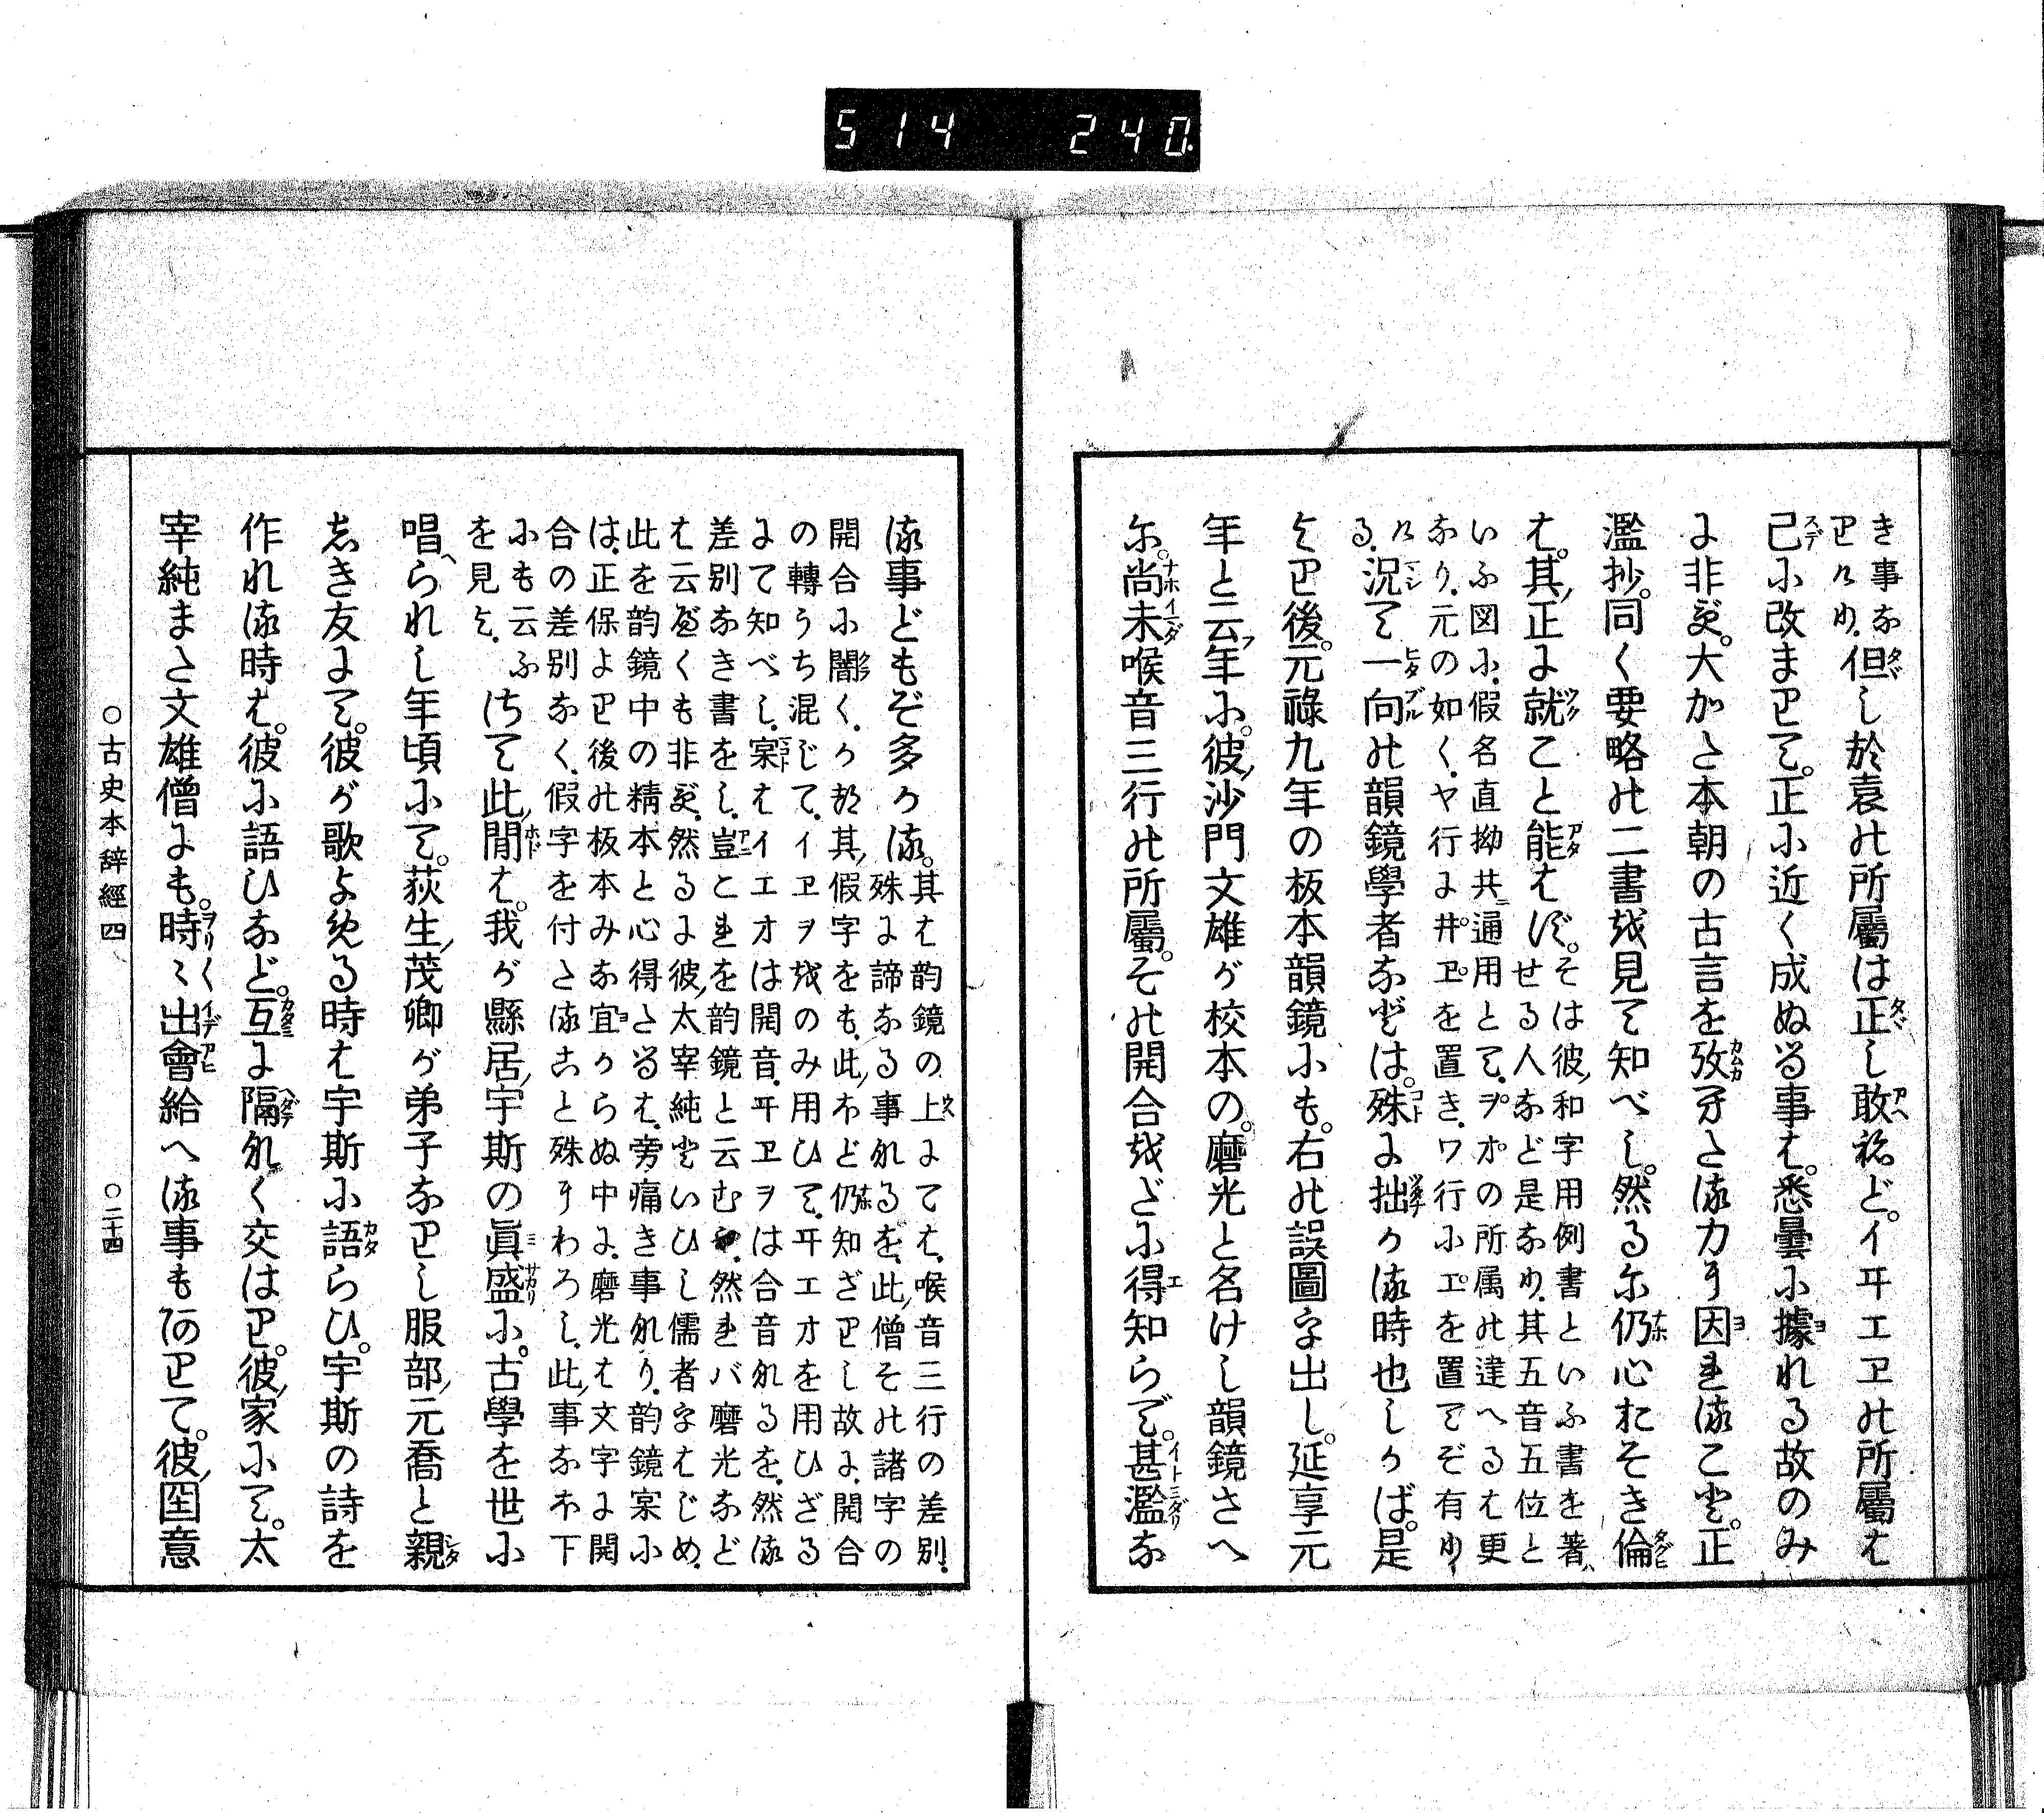 514 240.
き事な
りけり。但し於袁の所屬は正し敢ねど。イヰエヱの所屬は
已に改まりて。正に近く成ぬる事は。悉曇に據れる故のみ
に非ず。大かた本朝の古言を攷ヘたる力に因れること。正
濫抄。同く要略の二書を見て知べし。然るに仍心おそき倫
は。其正に就こと能はず。
そは彼和字用例書といふ書を著
せる人など是なり。其五音五位と
いふ図に。假名直拗共通用とて。ヲオの所属の違へるは更
なり。元の如く。ヤ行に井ヱを置き。ワ行にエを置てぞ有け
る。況て一向の韻鏡學者などは。殊に拙かる時也しかば。是
より後。元祿九年の板本韻鏡にも。右の誤圖を出し。延享元
年と云年に。彼沙門文雄が校本の。磨光と名けし韻鏡さへ
に。尚未喉音三行の所屬。その開合をだに得知らで。甚濫な
る事どもぞ多かる。
其は韵鏡の上にては。喉音三行の差別。
殊に諦なる事なるを。此僧その諸字の
開合に闇く。かれ其假字をも。此ほど仍知ざりし故に。開合
の轉うち混じて。イヱヲをのみ用ひて。ヰエオを用ひざる
にて知べし。案はイエオは開音。ヰヱヲは合音なるを。然る
差別なき書をし。豈これを韵鏡と云むや。然れバ磨光など
は云べくも非ず。然るに彼太宰純といひし儒者をはじめ。
此を韵鏡中の精本と心得たるは。旁痛き事なり。韵鏡案に
は。正保より後の板本みな宜からぬ中に。磨光は文字に開
合の差別なく。假字を付たること殊にわろし。此事なほ下
にも云ふ
を見よ。
さて此間は。我が縣居宇斯の眞盛に。古學を世に
唱へられし年頃にて。荻生茂卿が弟子なりし服部元喬と親
しき友にて。彼が歌よめる時は宇斯に語らひ。宇斯の詩を
作れる時は。彼に語ひなど。互に隔なく交はり。彼家にて。太
宰純また文雄僧にも。時々出會給へる事もありて。彼圉意
○古史本辭經四 ○二十四